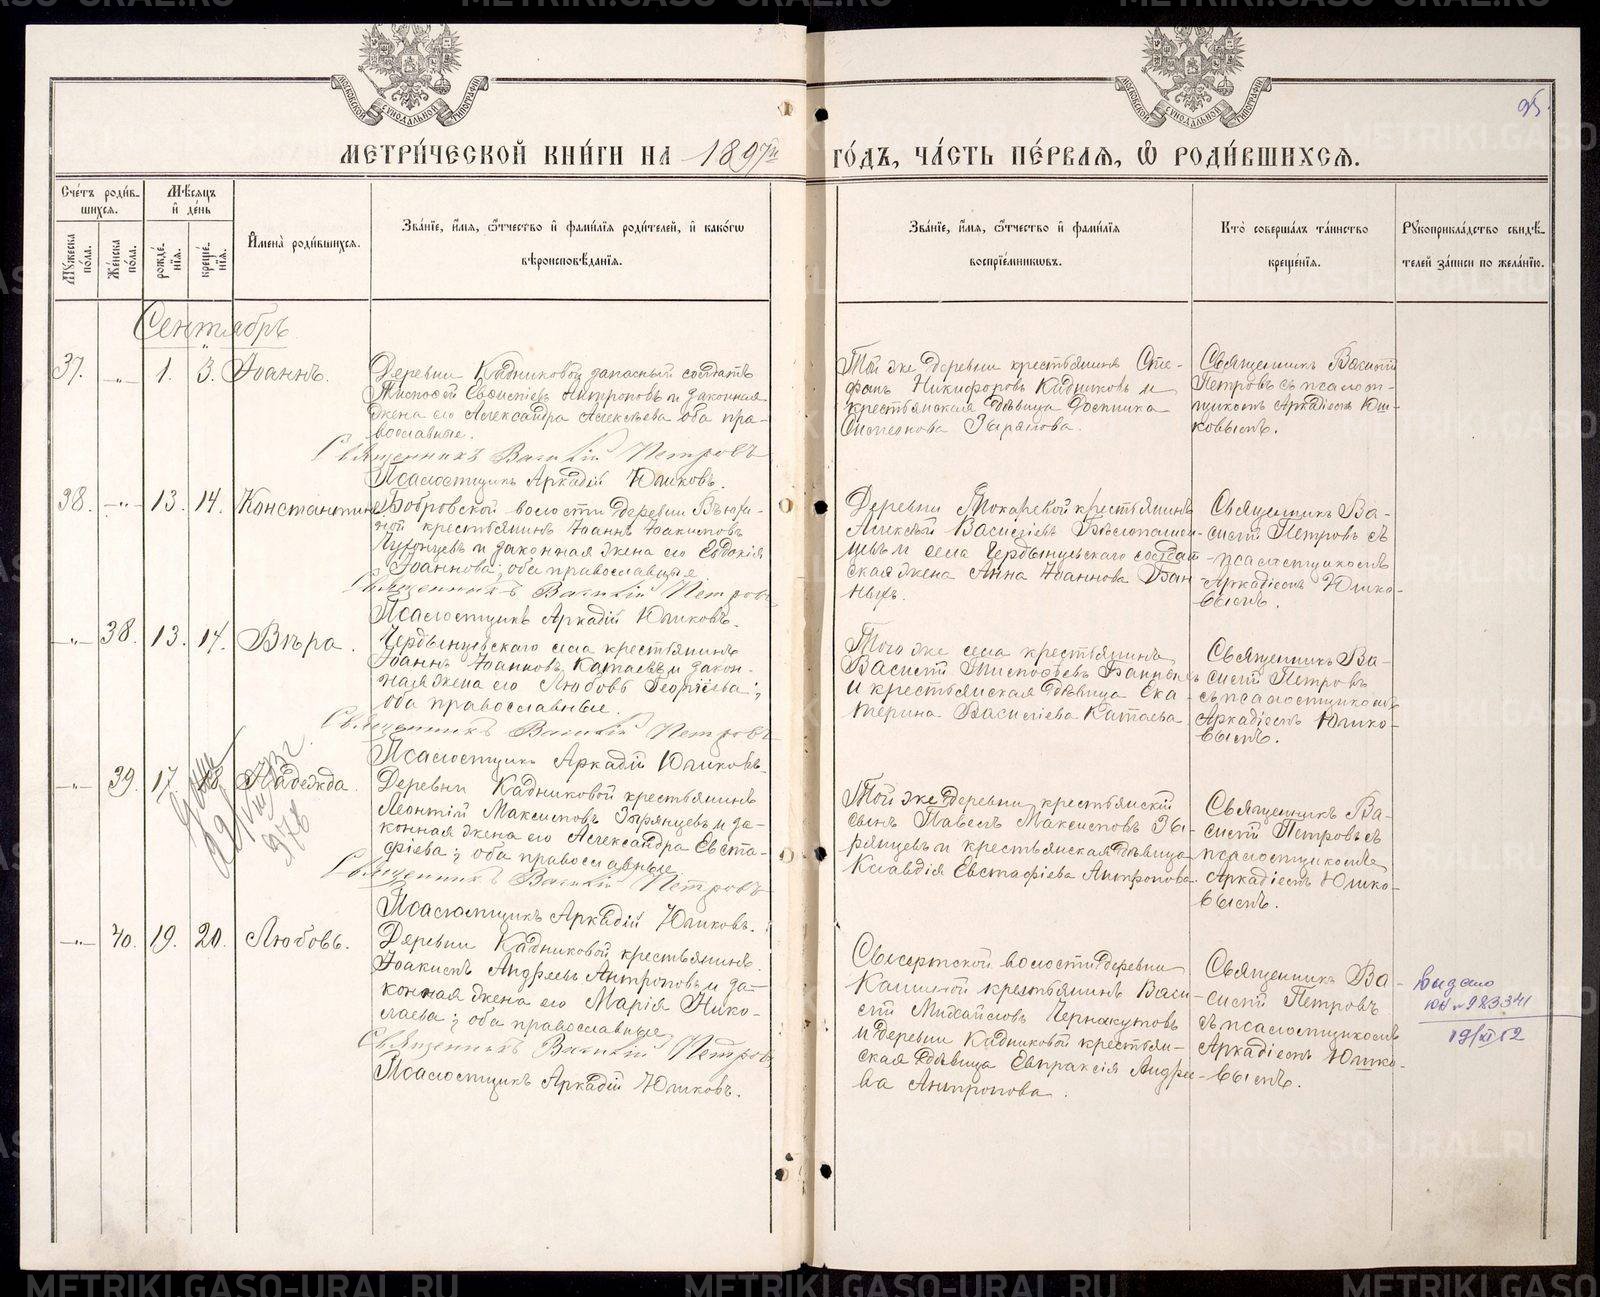 95.
МЕТРИЧЕСКОЙ КНИГИ НА 1897й ГОДЪ, ЧАСТЬ ПЕРВАЯ, Ѿ РОДИВШИХСЯ.
Счетъ родив-
шихся.
Мѣсяцъ
и день
Мужеска
пола.
Женска
пола.
рожде-
нія.
креще-
нія.
Имена родившихся.
Званіе, имя, отчество и фамилія родителей, и какого
вѣроисповѣданія.
Званіе, имя, отчество и фамилія
воспріемниковъ.
Кто совершалъ таинство
крещенія.
Рукоприкладство свидѣ-
телей записи по желанію.
Сентябрь
37. -„- 1. 3. Іоаннъ.
Деревни Кадниковой запасный солдатъ
Тимофей Евфиміевъ Антроповъ и законная
жена его Александра Алексѣева оба пра-
вославные.
Священникъ Василій Петровъ
Псаломщикъ Аркадій Юшковъ.
Той же деревни крестьянинъ Сте-
фанъ Никифоровъ Кадниковъ и
крестьянская дѣвица
Зырянова.
Священникъ Василій
Петровъ съ псалом-
щикомъ Аркадіемъ Юш-
ковымъ.
38. -„- 13. 14. Константинъ
Бобровской волости деревни
крестьянинъ Іоаннъ Іоакимовъ
и законная жена его Евдокія
Іоаннова; оба православные
Священникъ Василій Петровъ
Псаломщикъ Аркадій Юшковъ.
Деревни Токаревой крестьянинъ
Алексѣй Васильевъ
и села Чердынцевскаго солдат-
ская жена Анна Іоаннова Бан-
ныхъ.
Священникъ Ва-
силій Петровъ съ
псаломщикомъ
Аркадіемъ Юшко-
вымъ.
-„- 38. 13. 14. Вѣра.
Чердынцевскаго села крестьянинъ
Іоаннъ Катаевъ и закон-
ная жена его Любовь Георгіева;
оба православные.
Священникъ Василій Петровъ
Псаломщикъ Аркадій Юшковъ.
Того же села крестьянинъ
Василій Тимофеевъ
и крестьянская дѣвица Ека-
терина Василіева Катаева
Священникъ Ва-
силій Петровъ
съ псаломщикомъ
Аркадіемъ Юшко-
вымъ.
-„- 39. 17. 18. Надежда.
Деревни Кадниковой крестьянинъ
Леонтій Максимовъ Зырянцевъ и за-
конная жена его Александра Евста-
фіева; оба православные
Священникъ Василій Петровъ
Псаломщикъ Аркадій Юшковъ.
Той же деревни крестьянскій
сынъ Павелъ Максимовъ Зы-
рянцевъ и крестьянская дѣвица
Клавдія Евстафіева Антропова.
Священникъ Ва-
силій Петровъ съ
псаломщикомъ
Аркадіемъ Юшко-
вымъ.
-„- 40. 19. 20. Любовь.
Деревни Кадниковой крестьянинъ
Іоакимъ Андреевъ Антроповъ и за-
конная жена его Марія Нико-
лаева; оба православные
Священникъ Василій Петровъ
Псаломщикъ Аркадій Юшковъ.
Сысертской волости деревни
крестьянинъ Васи-
лій Михайловъ
и деревни Кадниковой крестьян-
ская дѣвица Евпраксія Андрее-
ва Антропова.
Священникъ Ва-
силій Петровъ
съ псаломщикомъ
Аркадіемъ Юшко-
вымъ.
Выдано
19/XI 52
METRIKI.GASO-URAL.RU